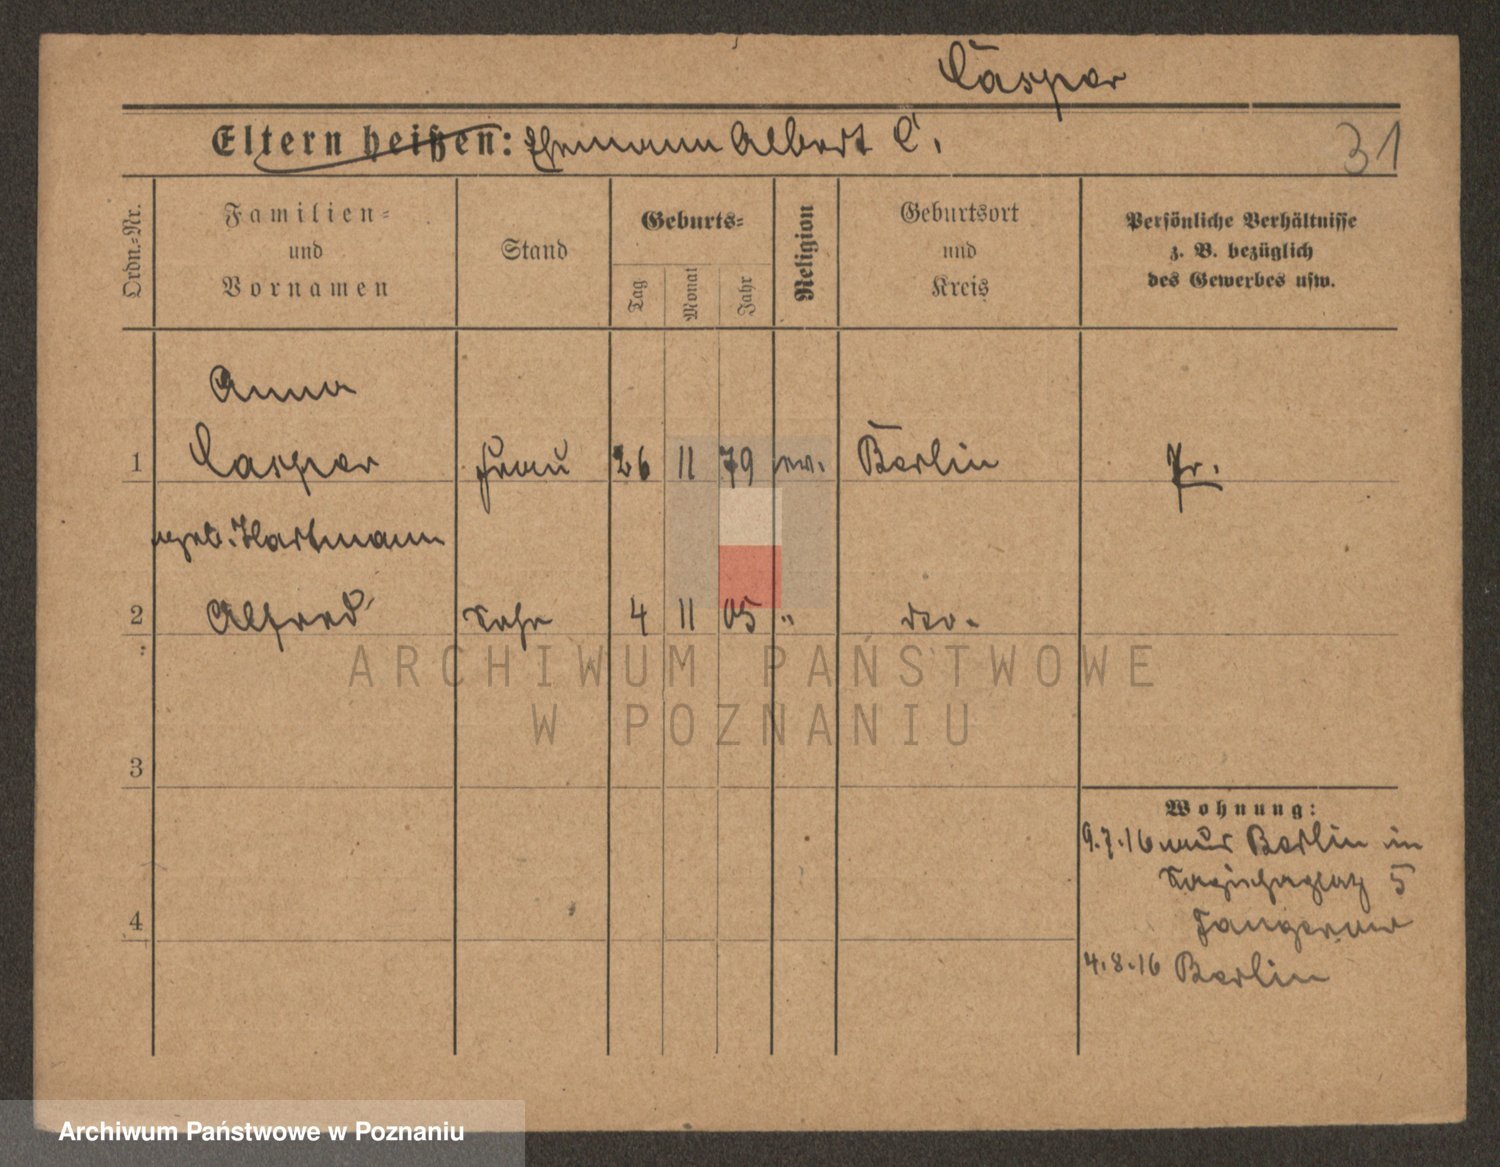 Caspar
Eltern heißen: Ehemann Albert C.
31
Ordn.-Nr.
Familien-
und
Vornamen
Stand
Geburts-
Tag
Monat
Jahr
Religion
Geburtsort
und
Kreis
Persönliche Verhältnisse
z. B. bezüglich
des Gewerbes usw.
Anna
1 Caspar Frau 26 11 79 ev. Berlin Pr.
geb. Hartmann
2 Alfred Sohn 4 11 05 " do.
ARCHIWUM PAŃSTWOWE
W POZNANIU
3
Wohnung:
9.7.16 aus Berlin in
5
4
4.8.16 Berlin
Archiwum Państwowe w Poznaniu